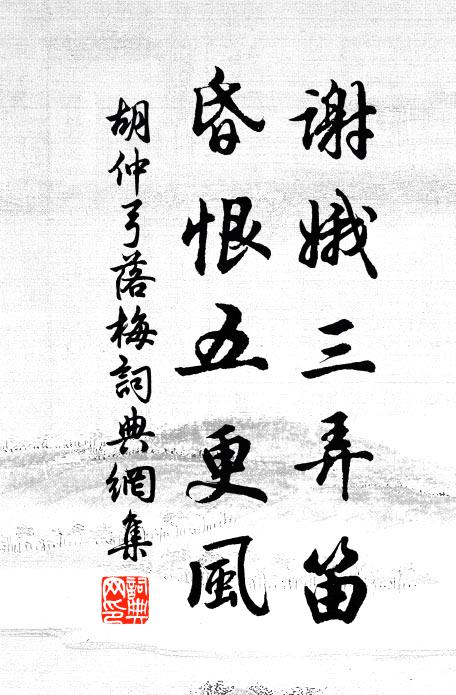 謝娥三弄笛
昏恨五更風
胡仲弓落梅詞典網集
詞典
網印